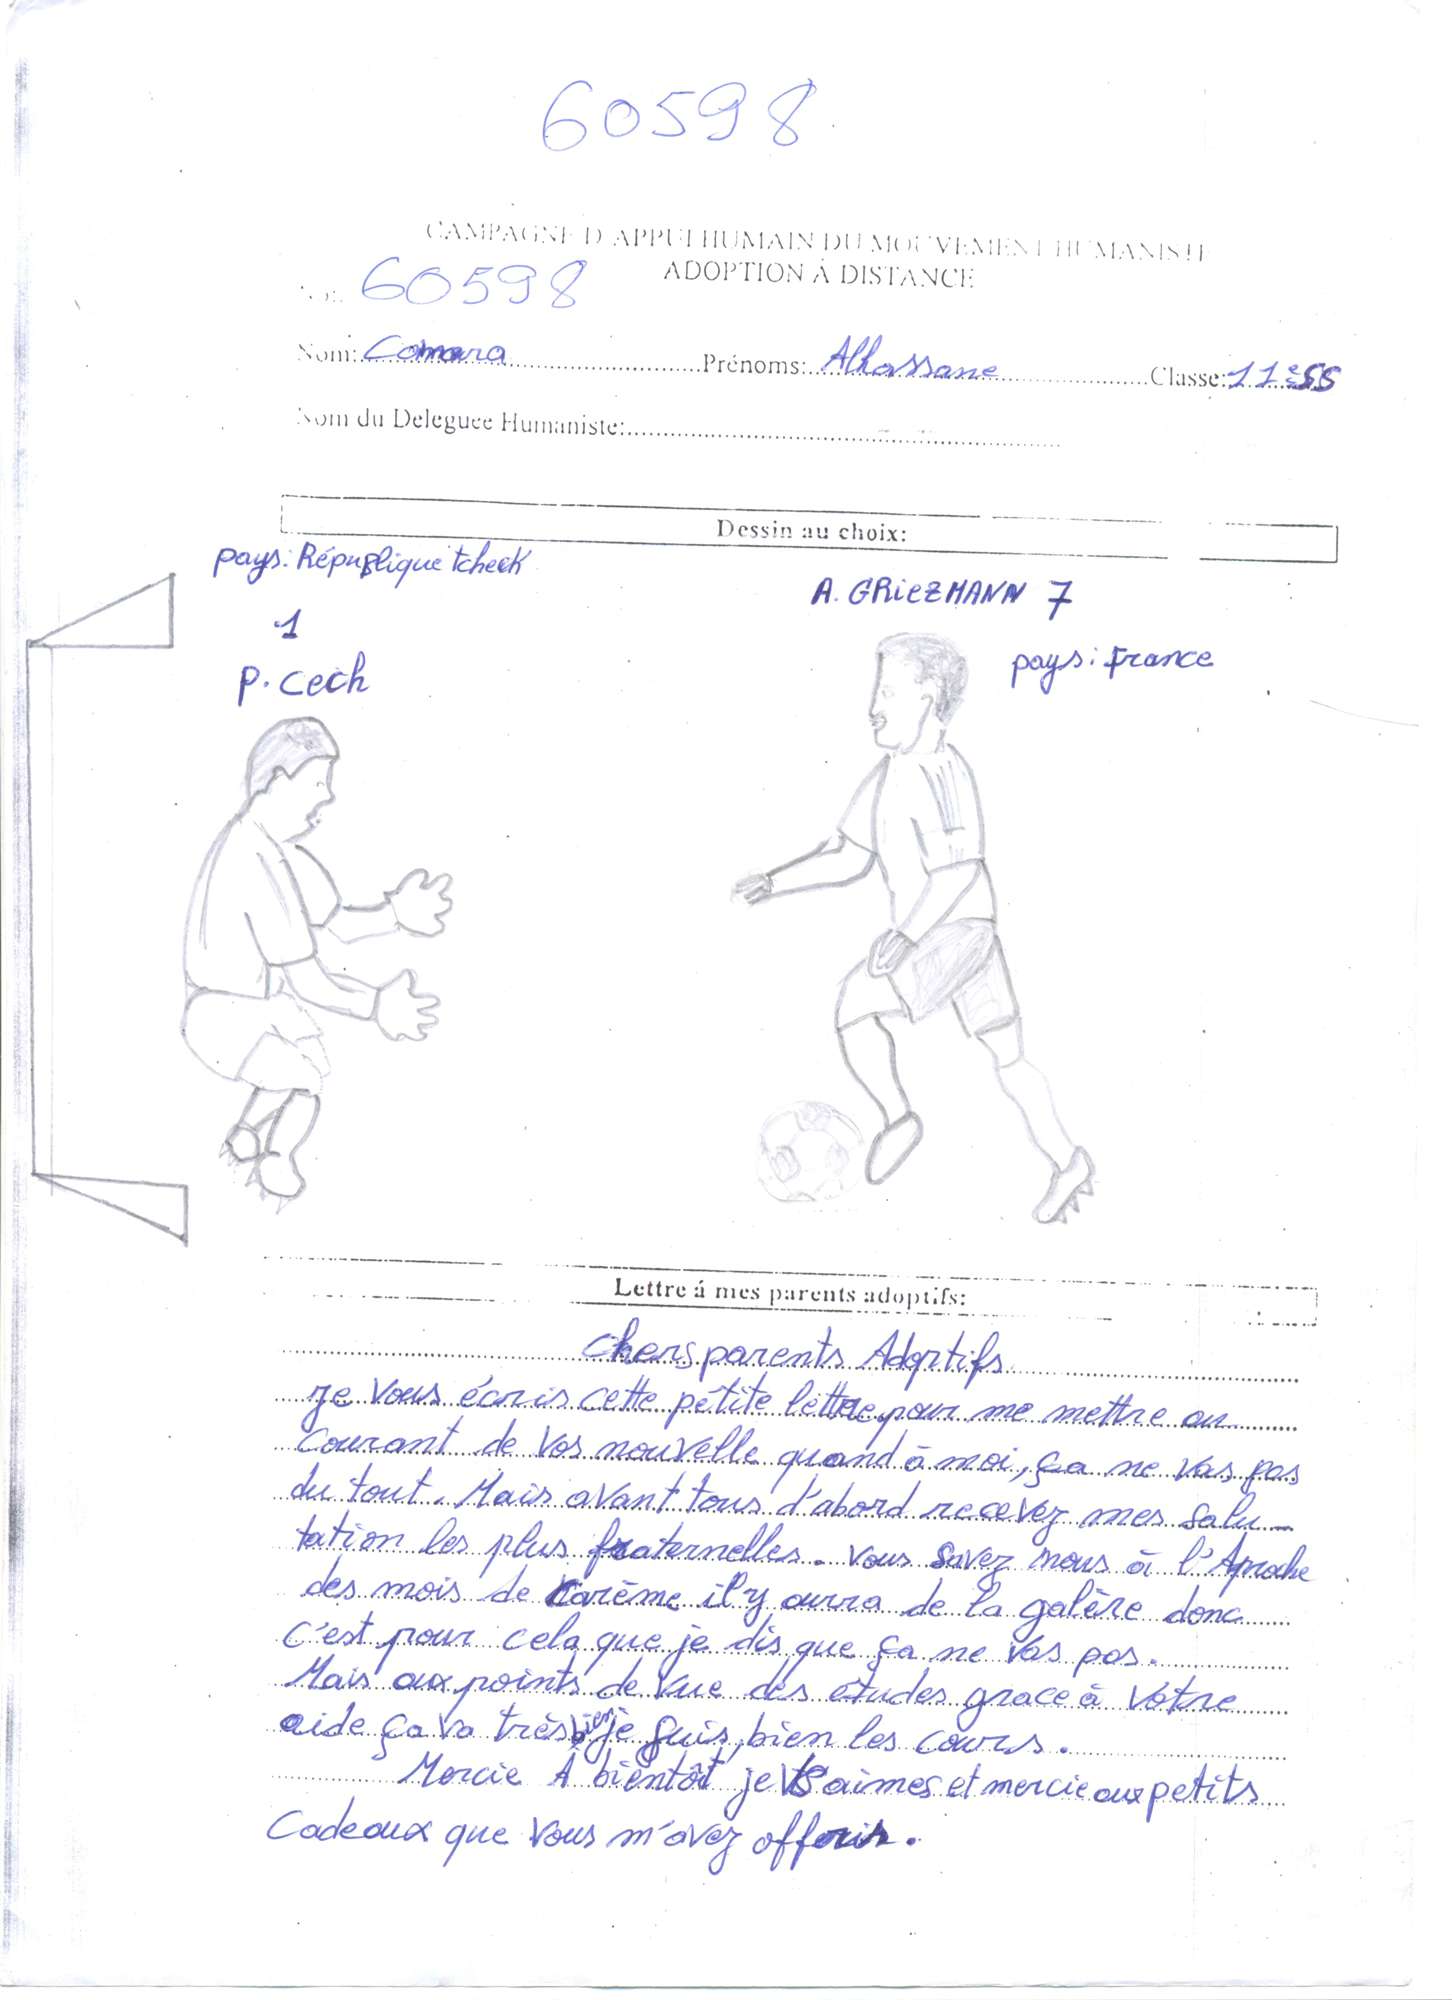 60598
CAMPAGNE D'APPUI HUMAIN DU MOUVEMENT HUMANISTE
ADOPTION À DISTANCE
No: 60598
Nom: Camara Prénoms: Alhassane Classe: 11è SS
Nom du Deleguee Humaniste:
Dessin au choix:
pays: République tcheck
1
P. Cech
A. GRiEZMANN 7
pays: france
Lettre á mes parents adoptifs:
Chers parents Adoptifs
je vous écris cette pétite lettre pour me mettre au
courant de vos nouvelle quand à moi, ça ne vas pas
du tout. Mais avant tous d'abord recevez mes salu-
tation les plus fraternelles. vous savez nous à l'Aproche
des mois de carème il y aurra de la galère donc
c'est pour cela que je dis que ça ne vas pas.
Mais aux points de vue des etudes grace à votre
aide ça va très bien je suis bien les cours.
Mercie À bientôt je vs aimes et mercie aux petits
Cadeaux que vous m'avez offeris.